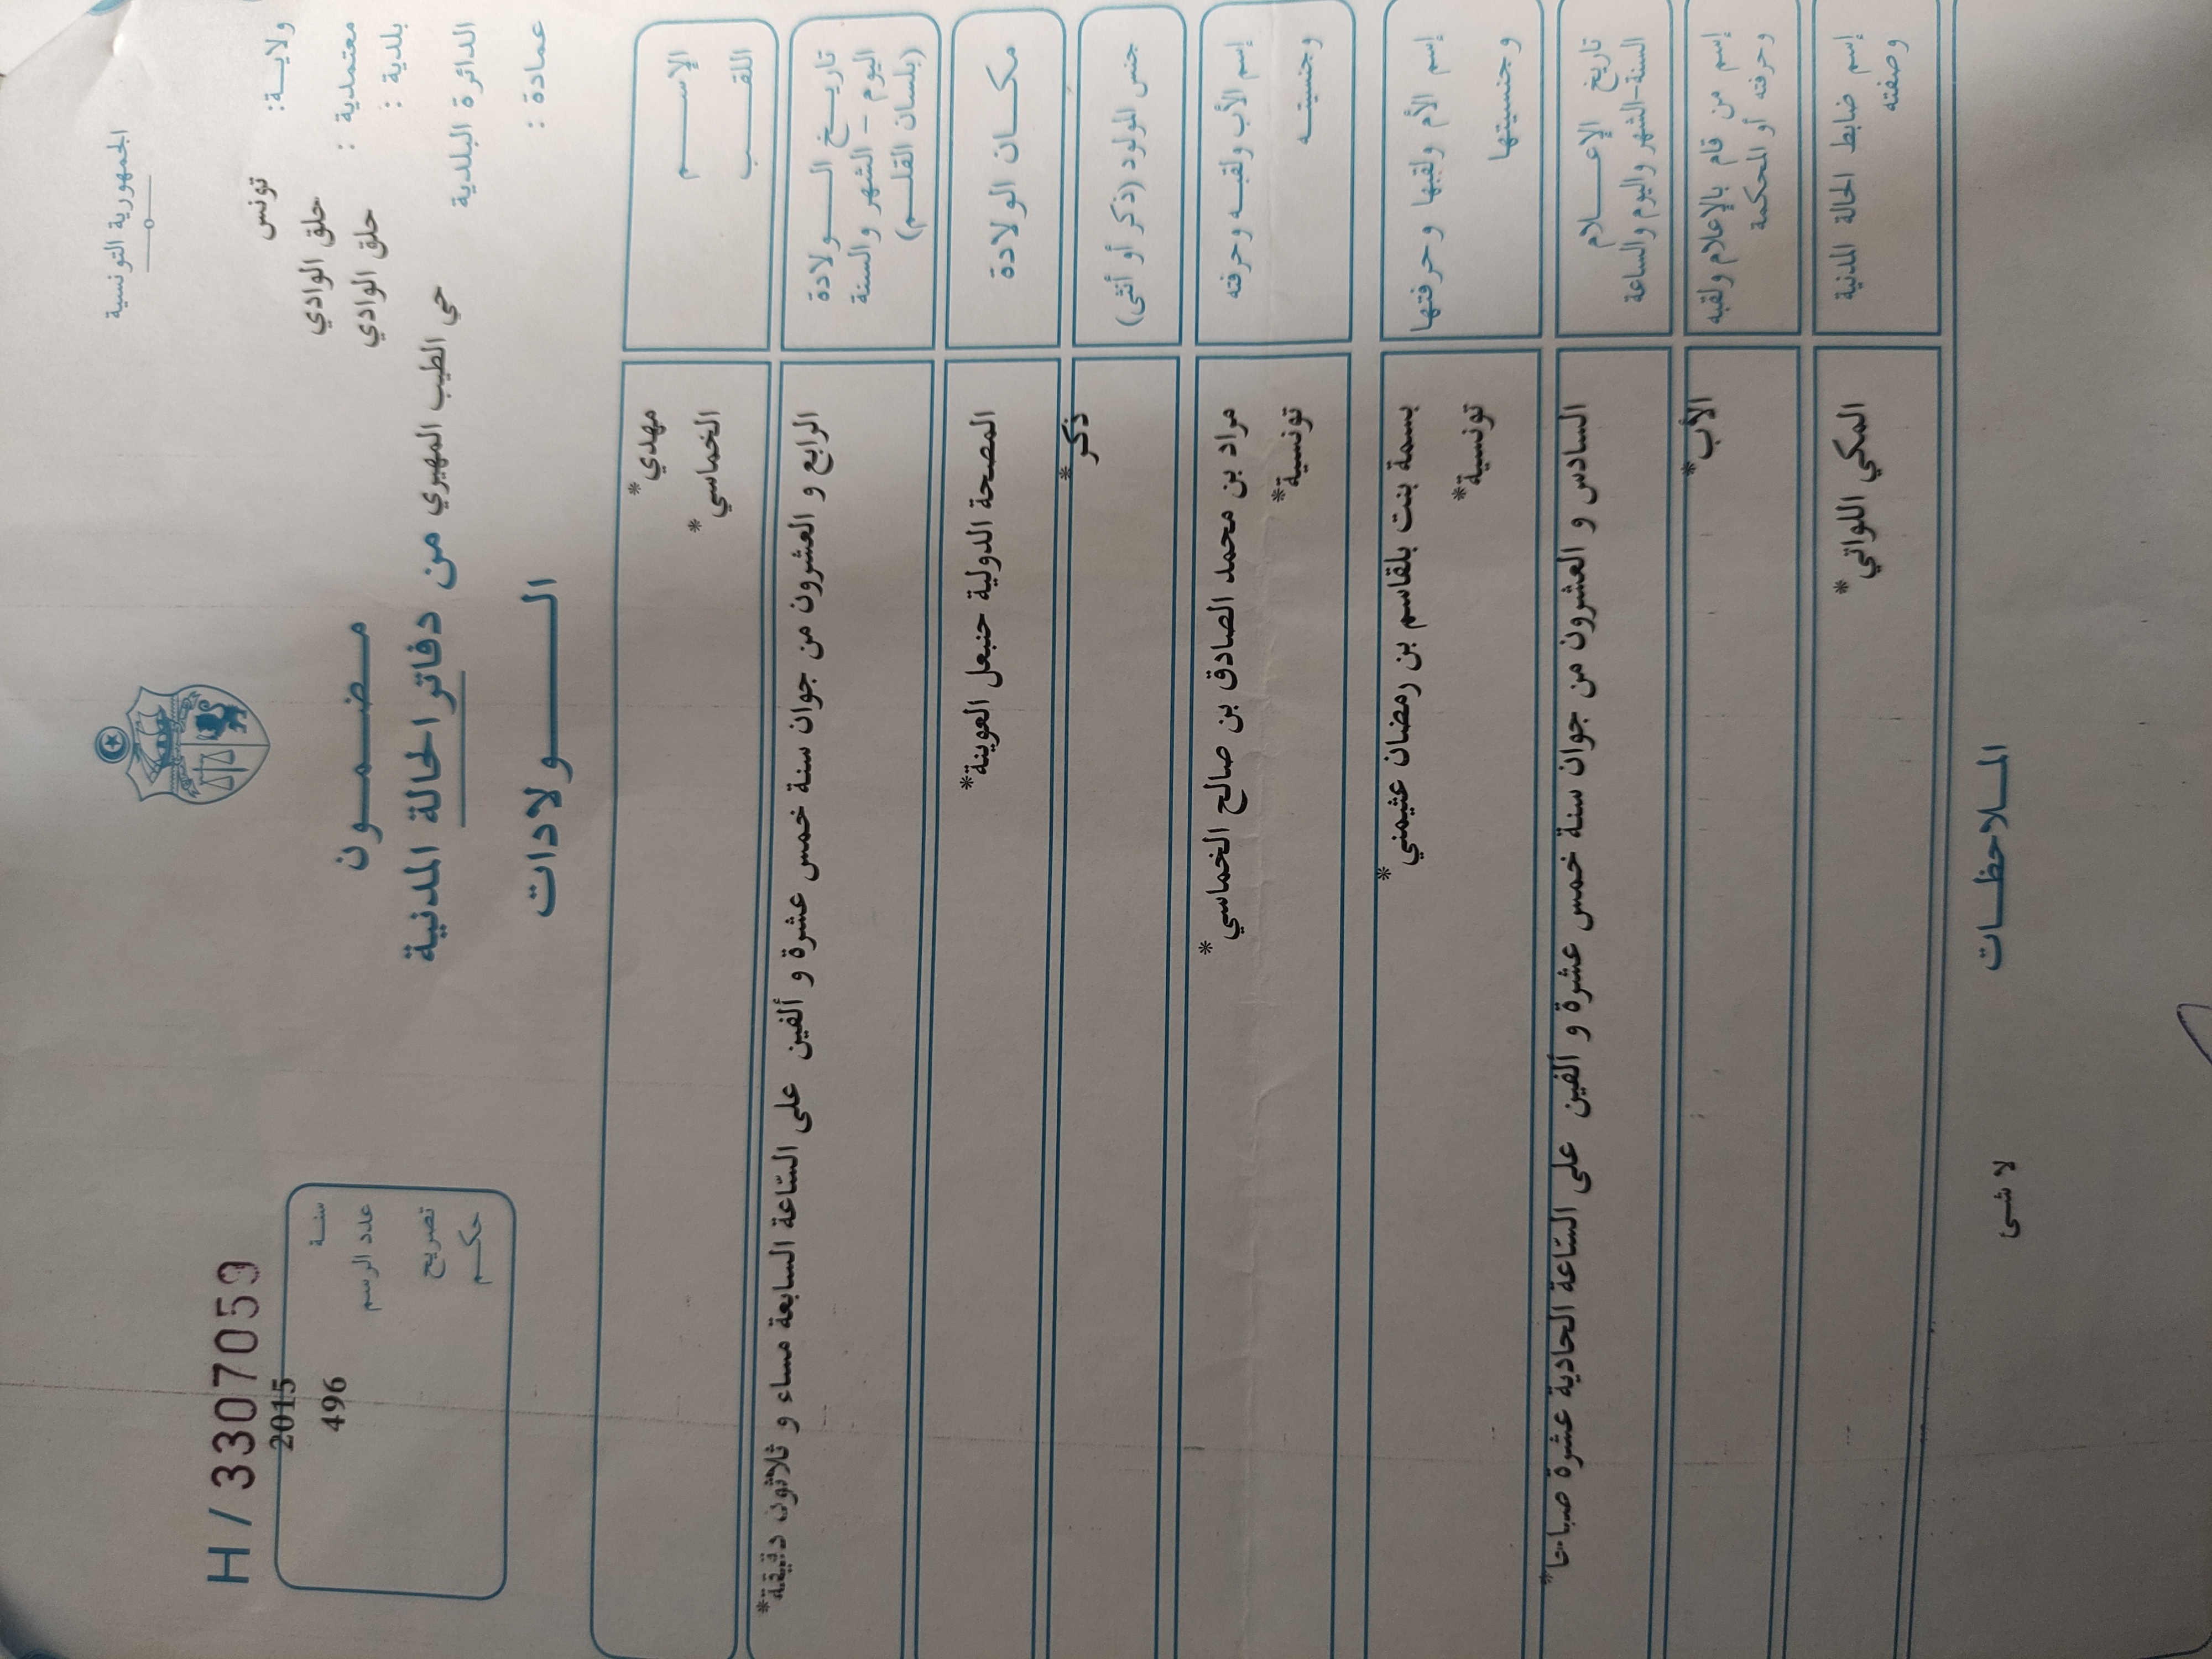 الجمهورية التونسية
ولايـــة: تونس
معتمدية : حلق الوادي
بلدية : حلق الوادي
الدائرة البلدية حي الطيب المهيري
عمادة :
H / 3307059
سنة 2015
عدد الرسم 496
تصريح
حكم
مضمون
من دفاتر الحالة المدنية
الولادات
الإسم مهدي*
اللقب الخماسي*
تاريخ الولادة الرابع و العشرون من جوان سنة خمس عشرة و ألفين على الساعة السابعة مساء و ثلاثون دقيقة*
اليوم - الشهر والسنة
(بلسان القلم)
مكان الولادة المصحة الدولية حنبعل العوينة*
جنس المولود (ذكر أو أنثى) ذكر*
إسم الأب ولقبه وحرفته مراد بن محمد الصادق بن صالح الخماسي*
وجنسيته تونسية*
إسم الأم ولقبها وحرفتها بسمة بنت بلقاسم بن رمضان عثيمني*
وجنسيتها تونسية*
تاريخ الإعلام السادس و العشرون من جوان سنة خمس عشرة و ألفين على الساعة الحادية عشرة صباحا*
السنة-الشهر واليوم والساعة
إسم من قام بالإعلام ولقبه الأب*
وحرفته أو المحكمة
إسم ضابط الحالة المدنية المكي اللواتي*
وصفته
الملاحظات
لا شئ